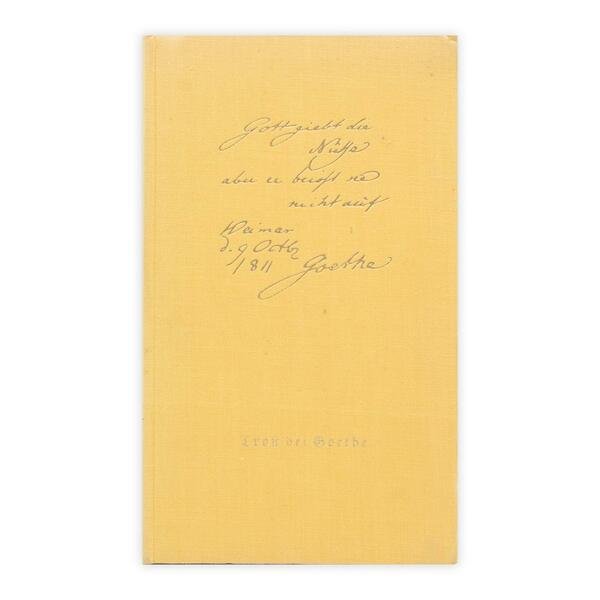 Gott giebt die
Nüsse
aber er beißt sie
nicht auf
Weimar
d. 9 Octbr
1811 Goethe
Trost bei Goethe